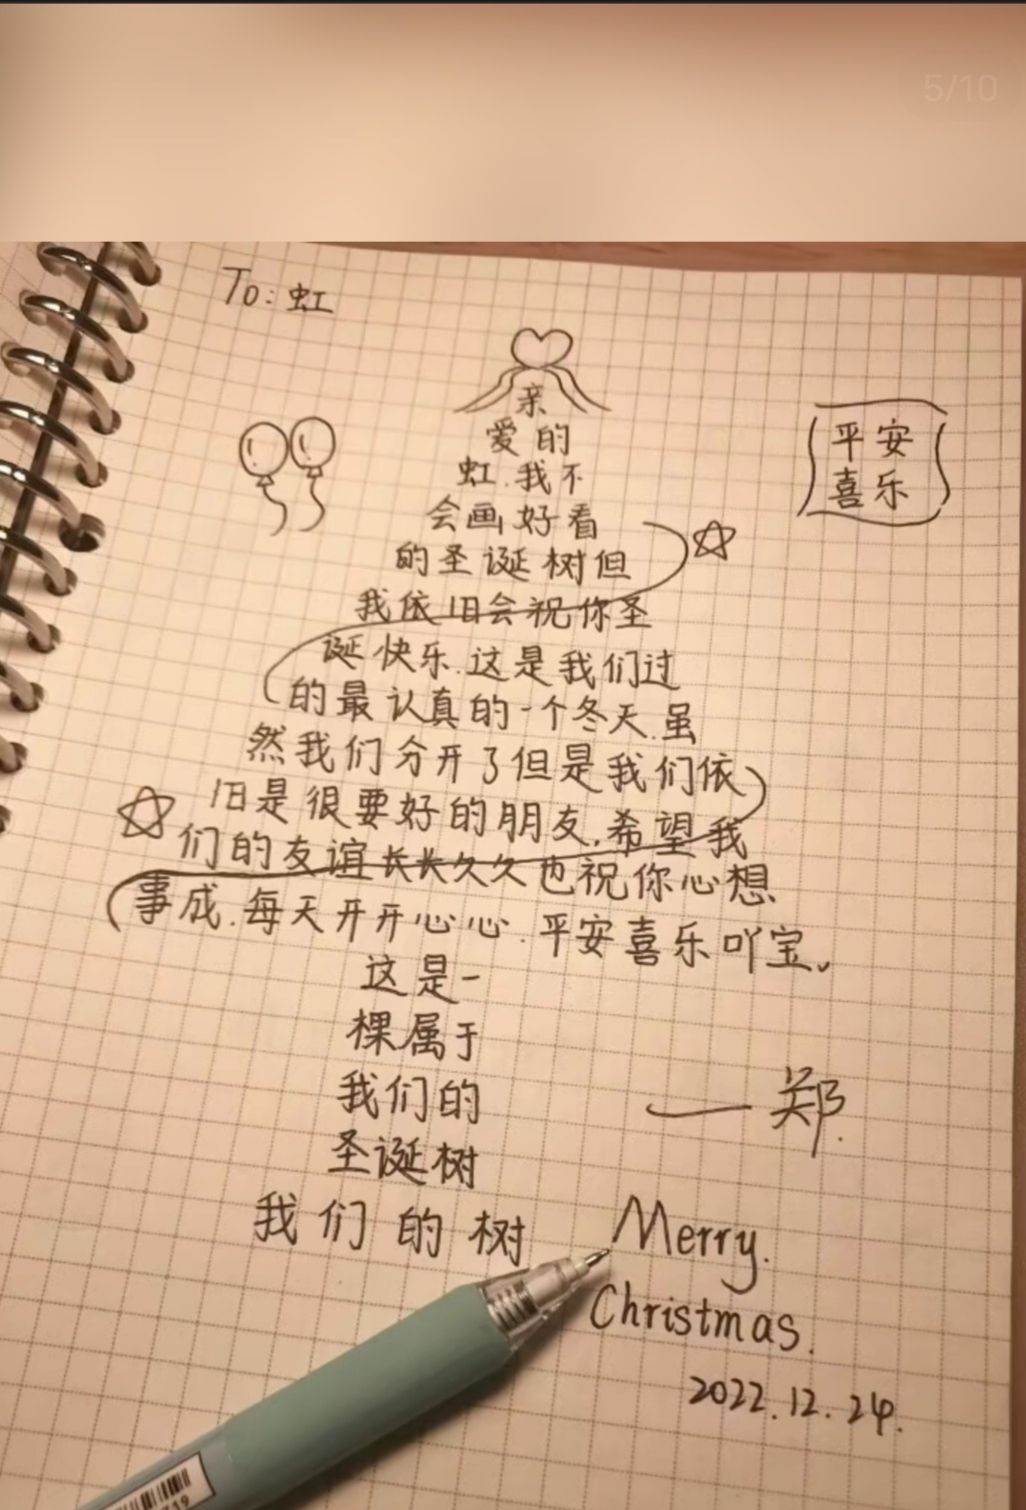 5/10
To: 虹
亲
爱的
虹.我不
会画好看
的圣诞树但
我依旧会祝你圣
诞快乐.这是我们过
的最认真的一个冬天.虽
然我们分开了但是我们依
旧是很要好的朋友.希望我
们的友谊长长久久也祝你心想
事成.每天开开心心.平安喜乐吖宝。
这是一
棵属于
我们的
圣诞树
我们的树
平安
喜乐
——郑.
Merry.
Christmas.
2022.12.24.